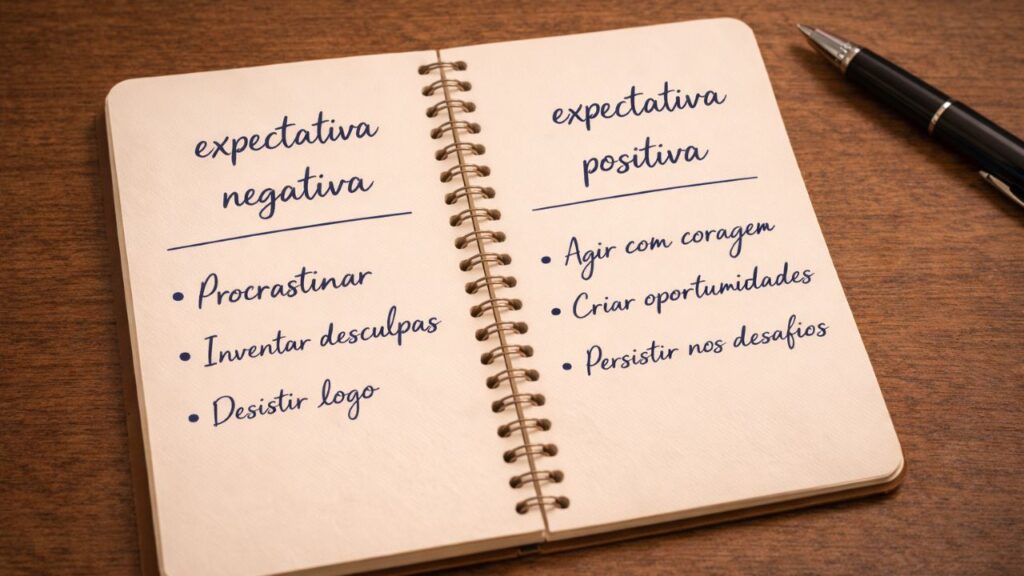 expectativa
negativa
• Procrastinar
• Inventar desculpas
• Desistir logo
expectativa
positiva
• Agir com coragem
• Criar oportumidades
• Persistir nos desafios